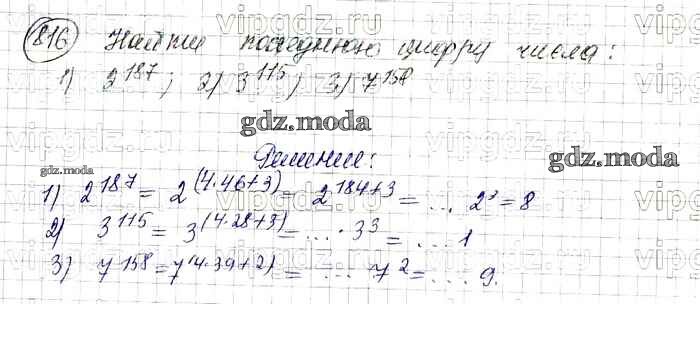 vipgdz.ru vipgdz.ru vipgdz.ru
816 Найти последнюю цифру числа:
1) 2^187; 2) 3^115; 3) 7^158
vipgdz.ru vipgdz.ru vipgdz.ru
gdz.moda
Решение:
gdz.moda
gdz.moda
1) 2^187 = 2^(4·46+3) = 2^184+3 = ... 2^3 = 8
2) 3^115 = 3^(4·28+3) = ... · 3^3 = ... 1
3) 7^158 = 7^(4·39+2) = ... 7^2 = ... 9.